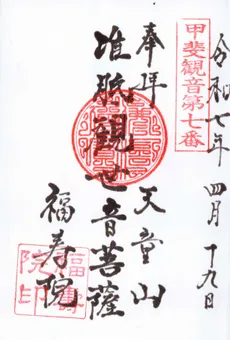 甲斐観音第七番
令和七年 四月 十九日
奉拝 天童山
准胝観世音菩薩
福寿院
福壽
院印